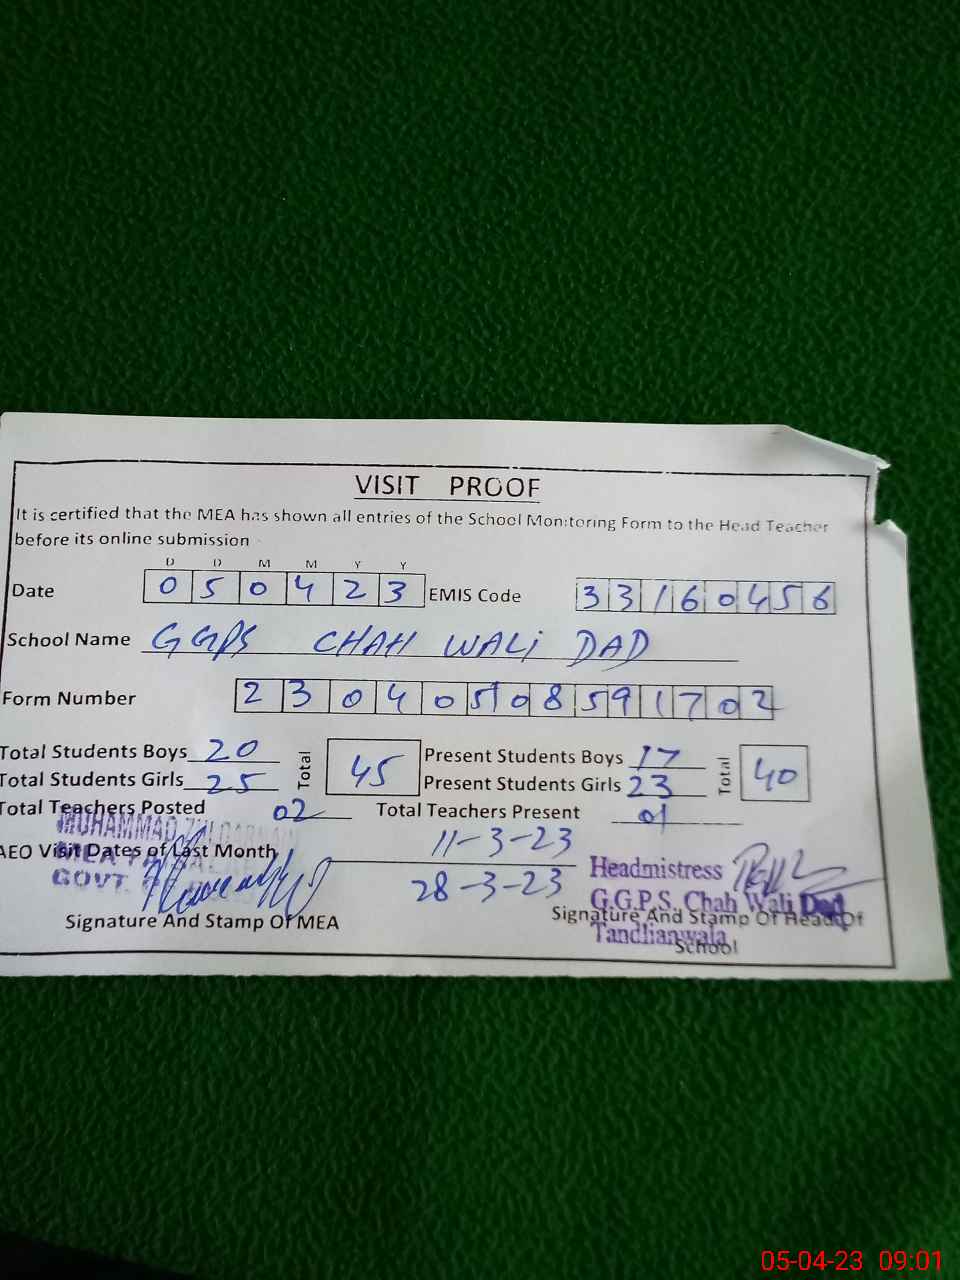 VISIT PROOF
It is certified that the MEA has shown all entries of the School Monitoring Form to the Head Teacher
before its online submission
D D M M Y Y
Date 0 5 0 4 2 3 EMIS Code 3 3 1 6 0 4 5 6
School Name GGPS CHAH WALi DAD
Form Number 2 3 0 4 0 5 0 8 5 9 1 7 0 2
Total Students Boys 20 Total 45 Present Students Boys 17 Total 40
Total Students Girls 25 Present Students Girls 23
Total Teachers Posted 02 Total Teachers Present 01
MUHAMMAD
AEO Visit Dates of Last Month 11-3-23
28-3-23
MEA
GOVT.
Headmistress
G.G.P.S. Chah Wali Dad
Tandlianwala
Signature And Stamp Of MEA
Signature And Stamp Of Head Of
School
05-04-23 09:01